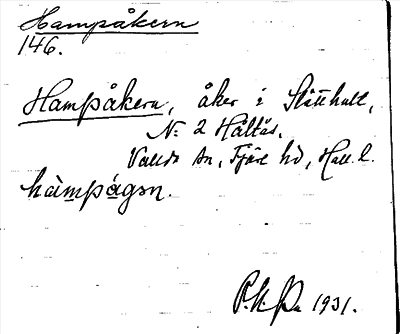 Hampåkern
146.
Hampåkern, åker i Slätthult,
No 2 Håltås.
Vallda sn, Fjäre hd, Hall. l.
hàmpágən.
1931.